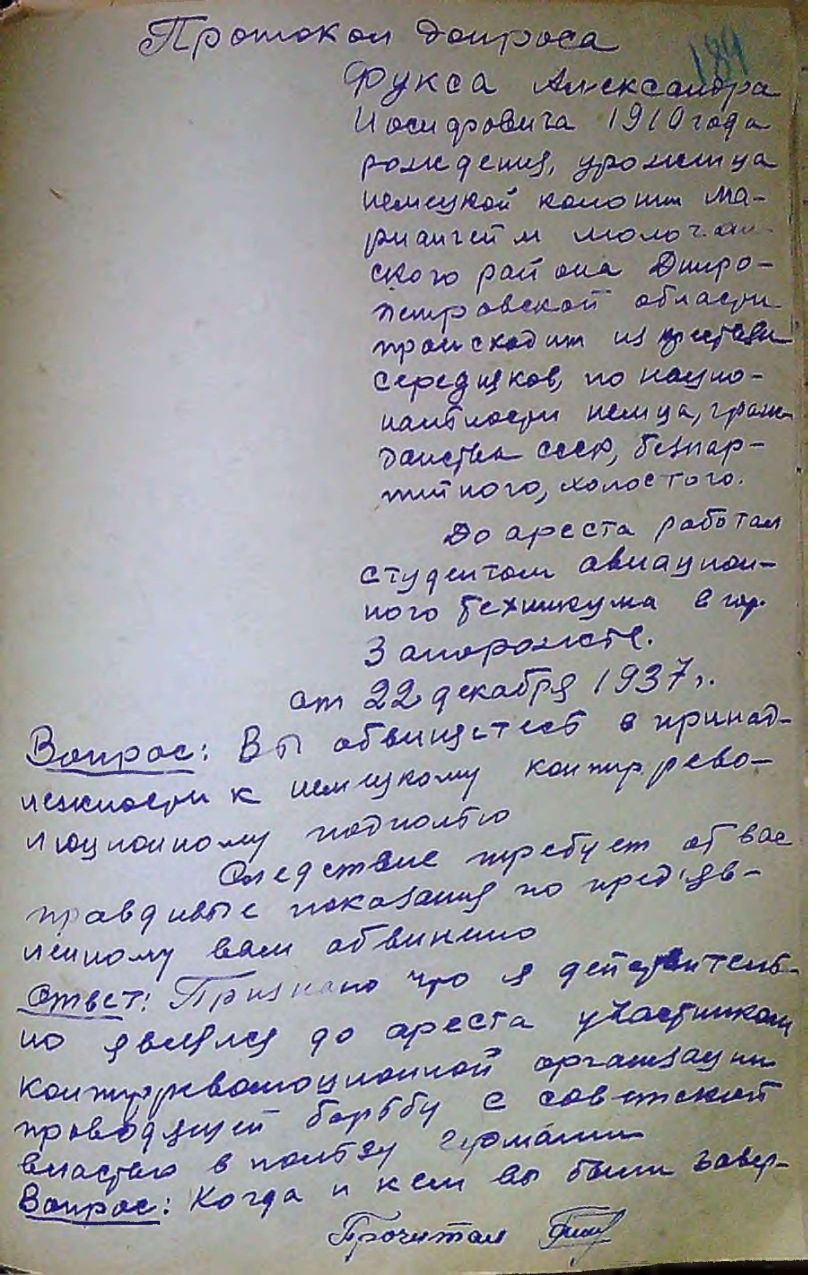 Протокол допроса
184
Фукса Александра
Иосифовича 1910 года
рождения, уроженца
немецкой колонии Ма-
риангейм Молочан-
ского района Днепро-
петровской области
происходит из крестьян
середняков, по нацио-
нальности немца, граж-
данства СССР, безпар-
тийного, холостого.
До ареста работал
студентом авиацион-
ного техникума в гор.
Запорожье.
от 22 декабря 1937 г.
Вопрос: Вы обвиняетесь в принад-
лежности к немецкому контррево-
люционному подполью
Следствие требует от вас
правдивые показания по предъяв-
ленному вам обвинению
Ответ: Признаю что я действитель-
но являлся до ареста участником
контрреволюционной организации
проводящей борьбу с советской
властью в пользу Германии
Вопрос: Когда и кем вы были завер-
Прочитал